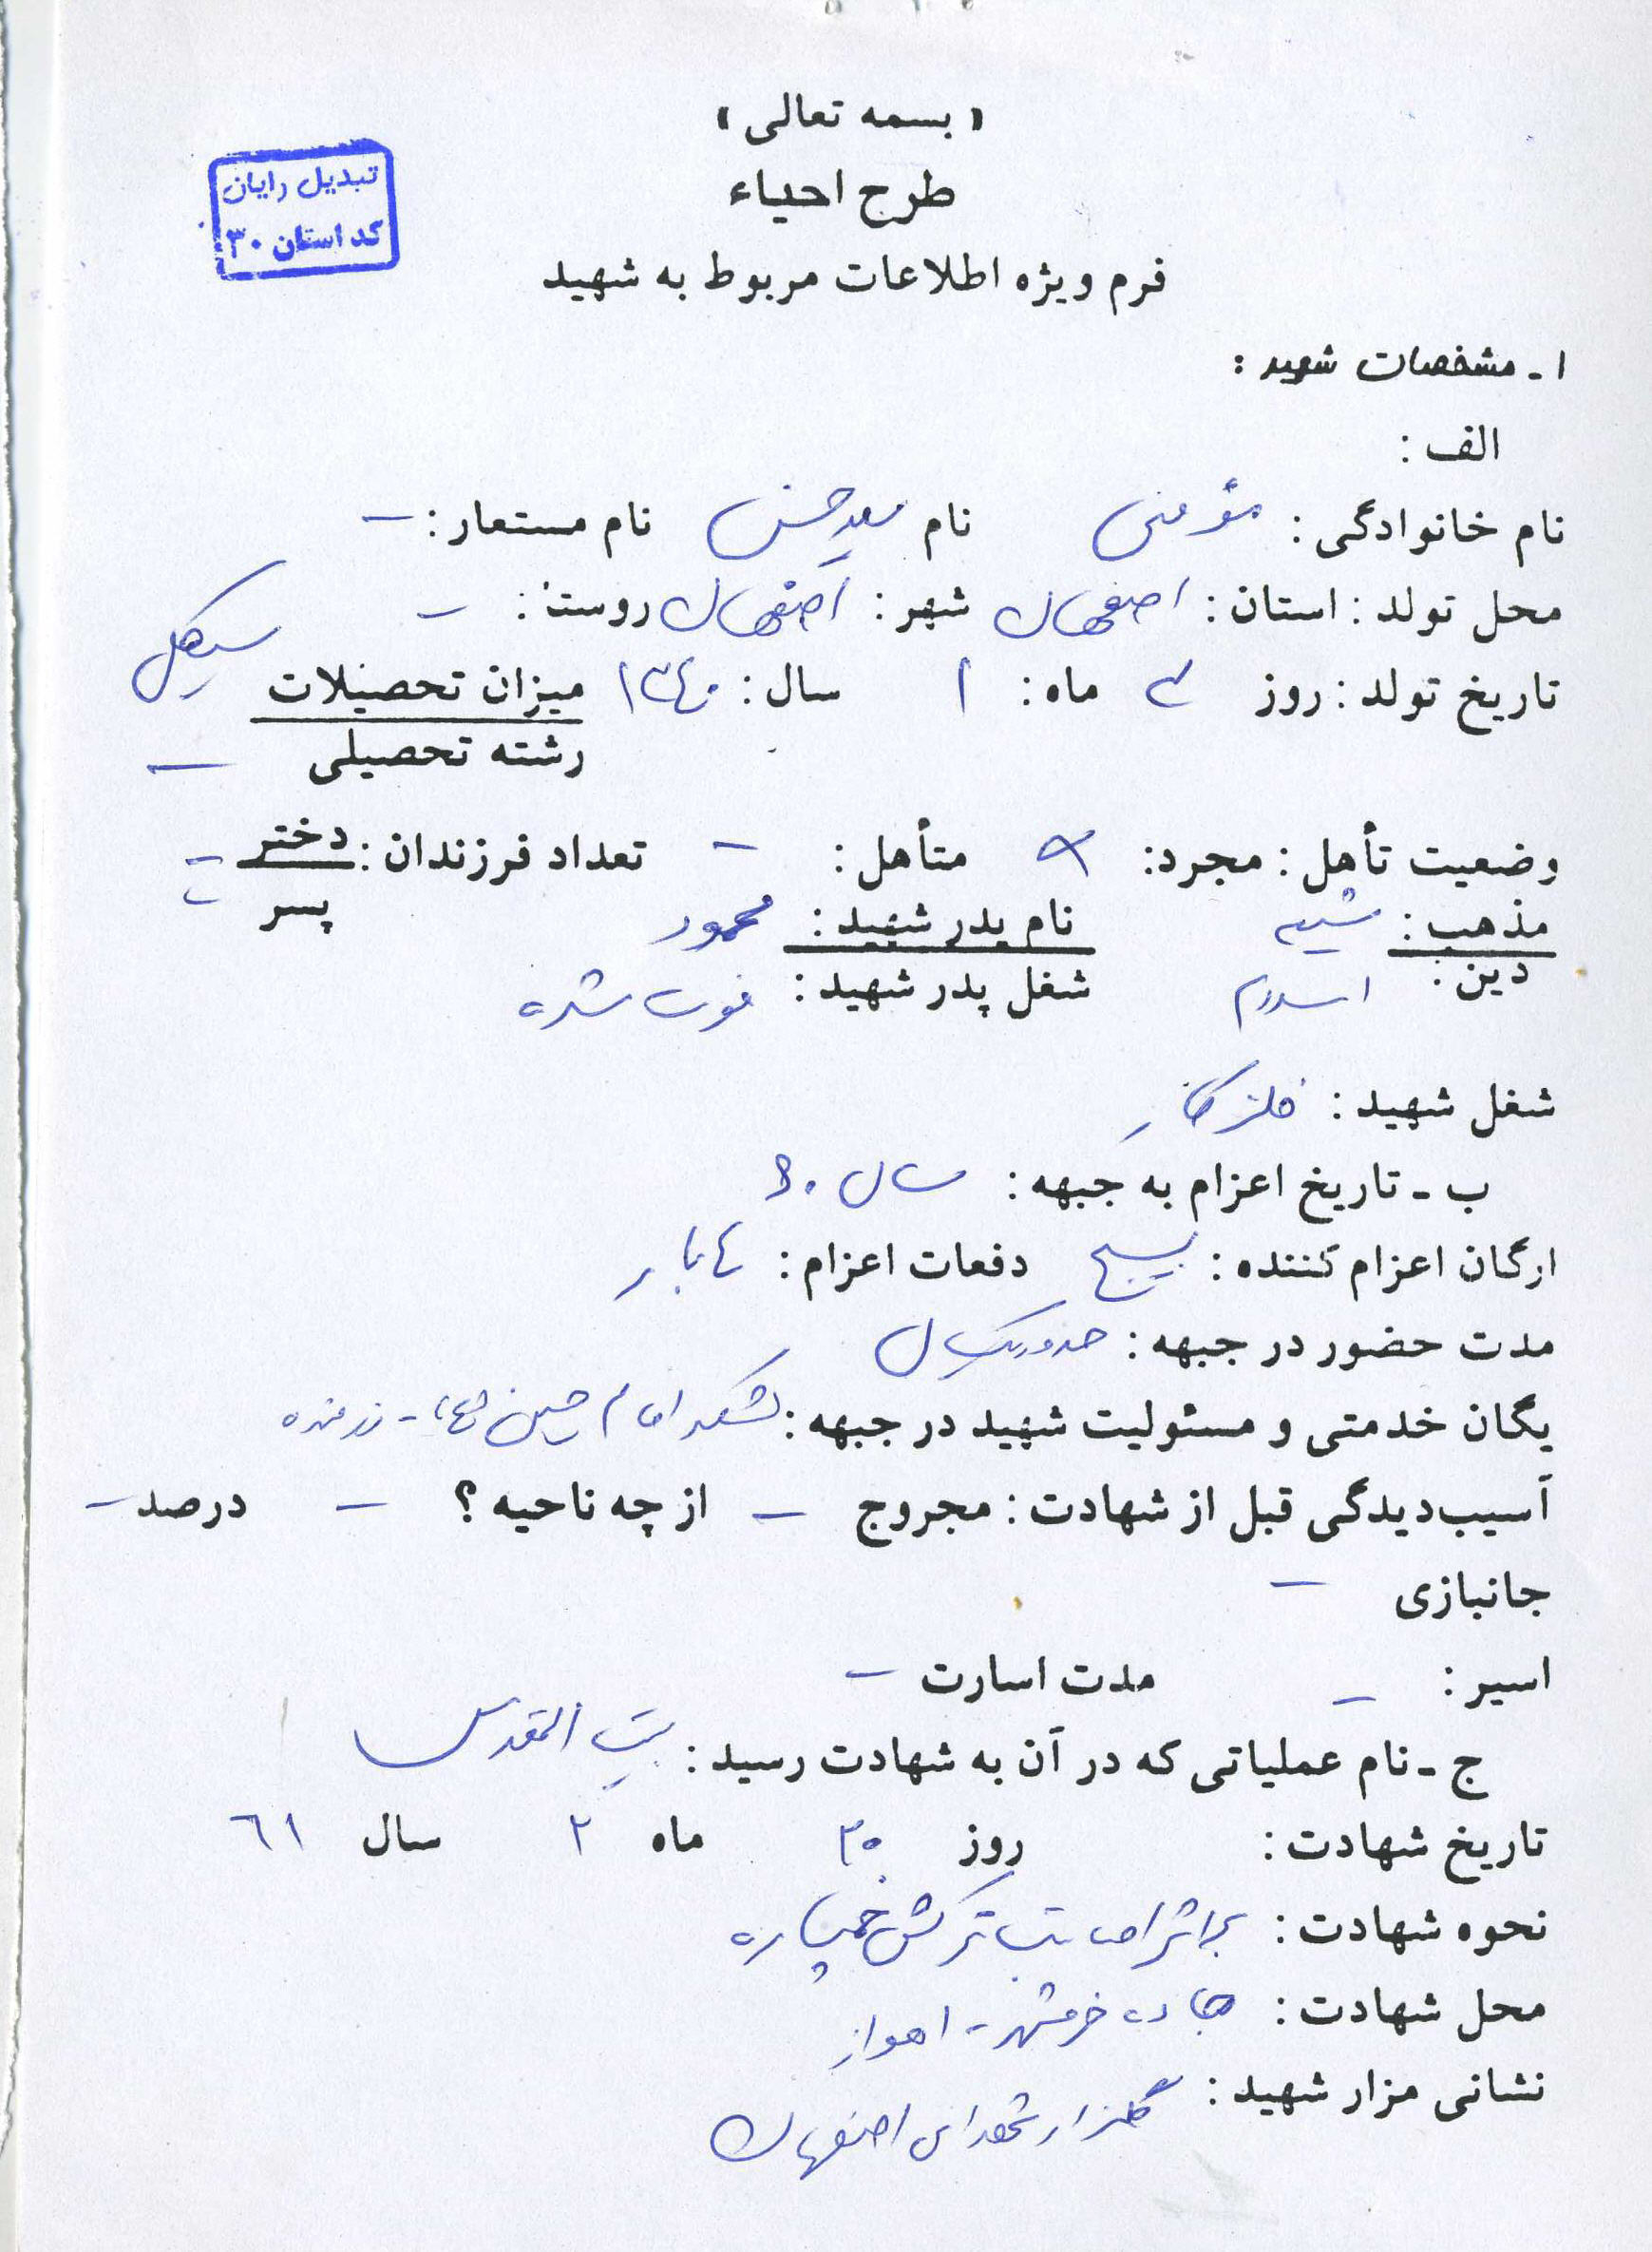 « بسمه تعالی »
طرح احیاء
تبدیل رایان
کد استان ۳۰
فرم ویژه اطلاعات مربوط به شهید
۱ - مشخصات شهید :
الف :
نام خانوادگی : مؤمنی نام سیدحسن نام مستعار : -
محل تولد : استان : اصفهان شهر : اصفهان روستا : -
تاریخ تولد : روز ماه : ۱ سال : ۱۳۴۰ میزان تحصیلات سیکل
رشته تحصیلی -
وضعیت تأهل : مجرد : متأهل : - تعداد فرزندان : دختر -
پسر -
مذهب : شیعه نام پدر شهید : محمود
دین : اسلام شغل پدر شهید : فوت شده
شغل شهید : فلزکار
ب - تاریخ اعزام به جبهه : سال ۶۰
ارگان اعزام کننده : بسیج دفعات اعزام : بار
مدت حضور در جبهه : حدود یکسال
یگان خدمتی و مسئولیت شهید در جبهه : لشکر امام حسین (ع) - رزمنده
آسیب‌دیدگی قبل از شهادت : مجروح - از چه ناحیه ؟ - درصد -
جانبازی -
اسیر : - مدت اسارت -
ج - نام عملیاتی که در آن به شهادت رسید : بیت المقدس
تاریخ شهادت : روز ۲۰ ماه ۲ سال ۶۱
نحوه شهادت : بر اثر اصابت ترکش خمپاره
محل شهادت : جاده خرمشهر - اهواز
نشانی مزار شهید : گلزار شهدای اصفهان